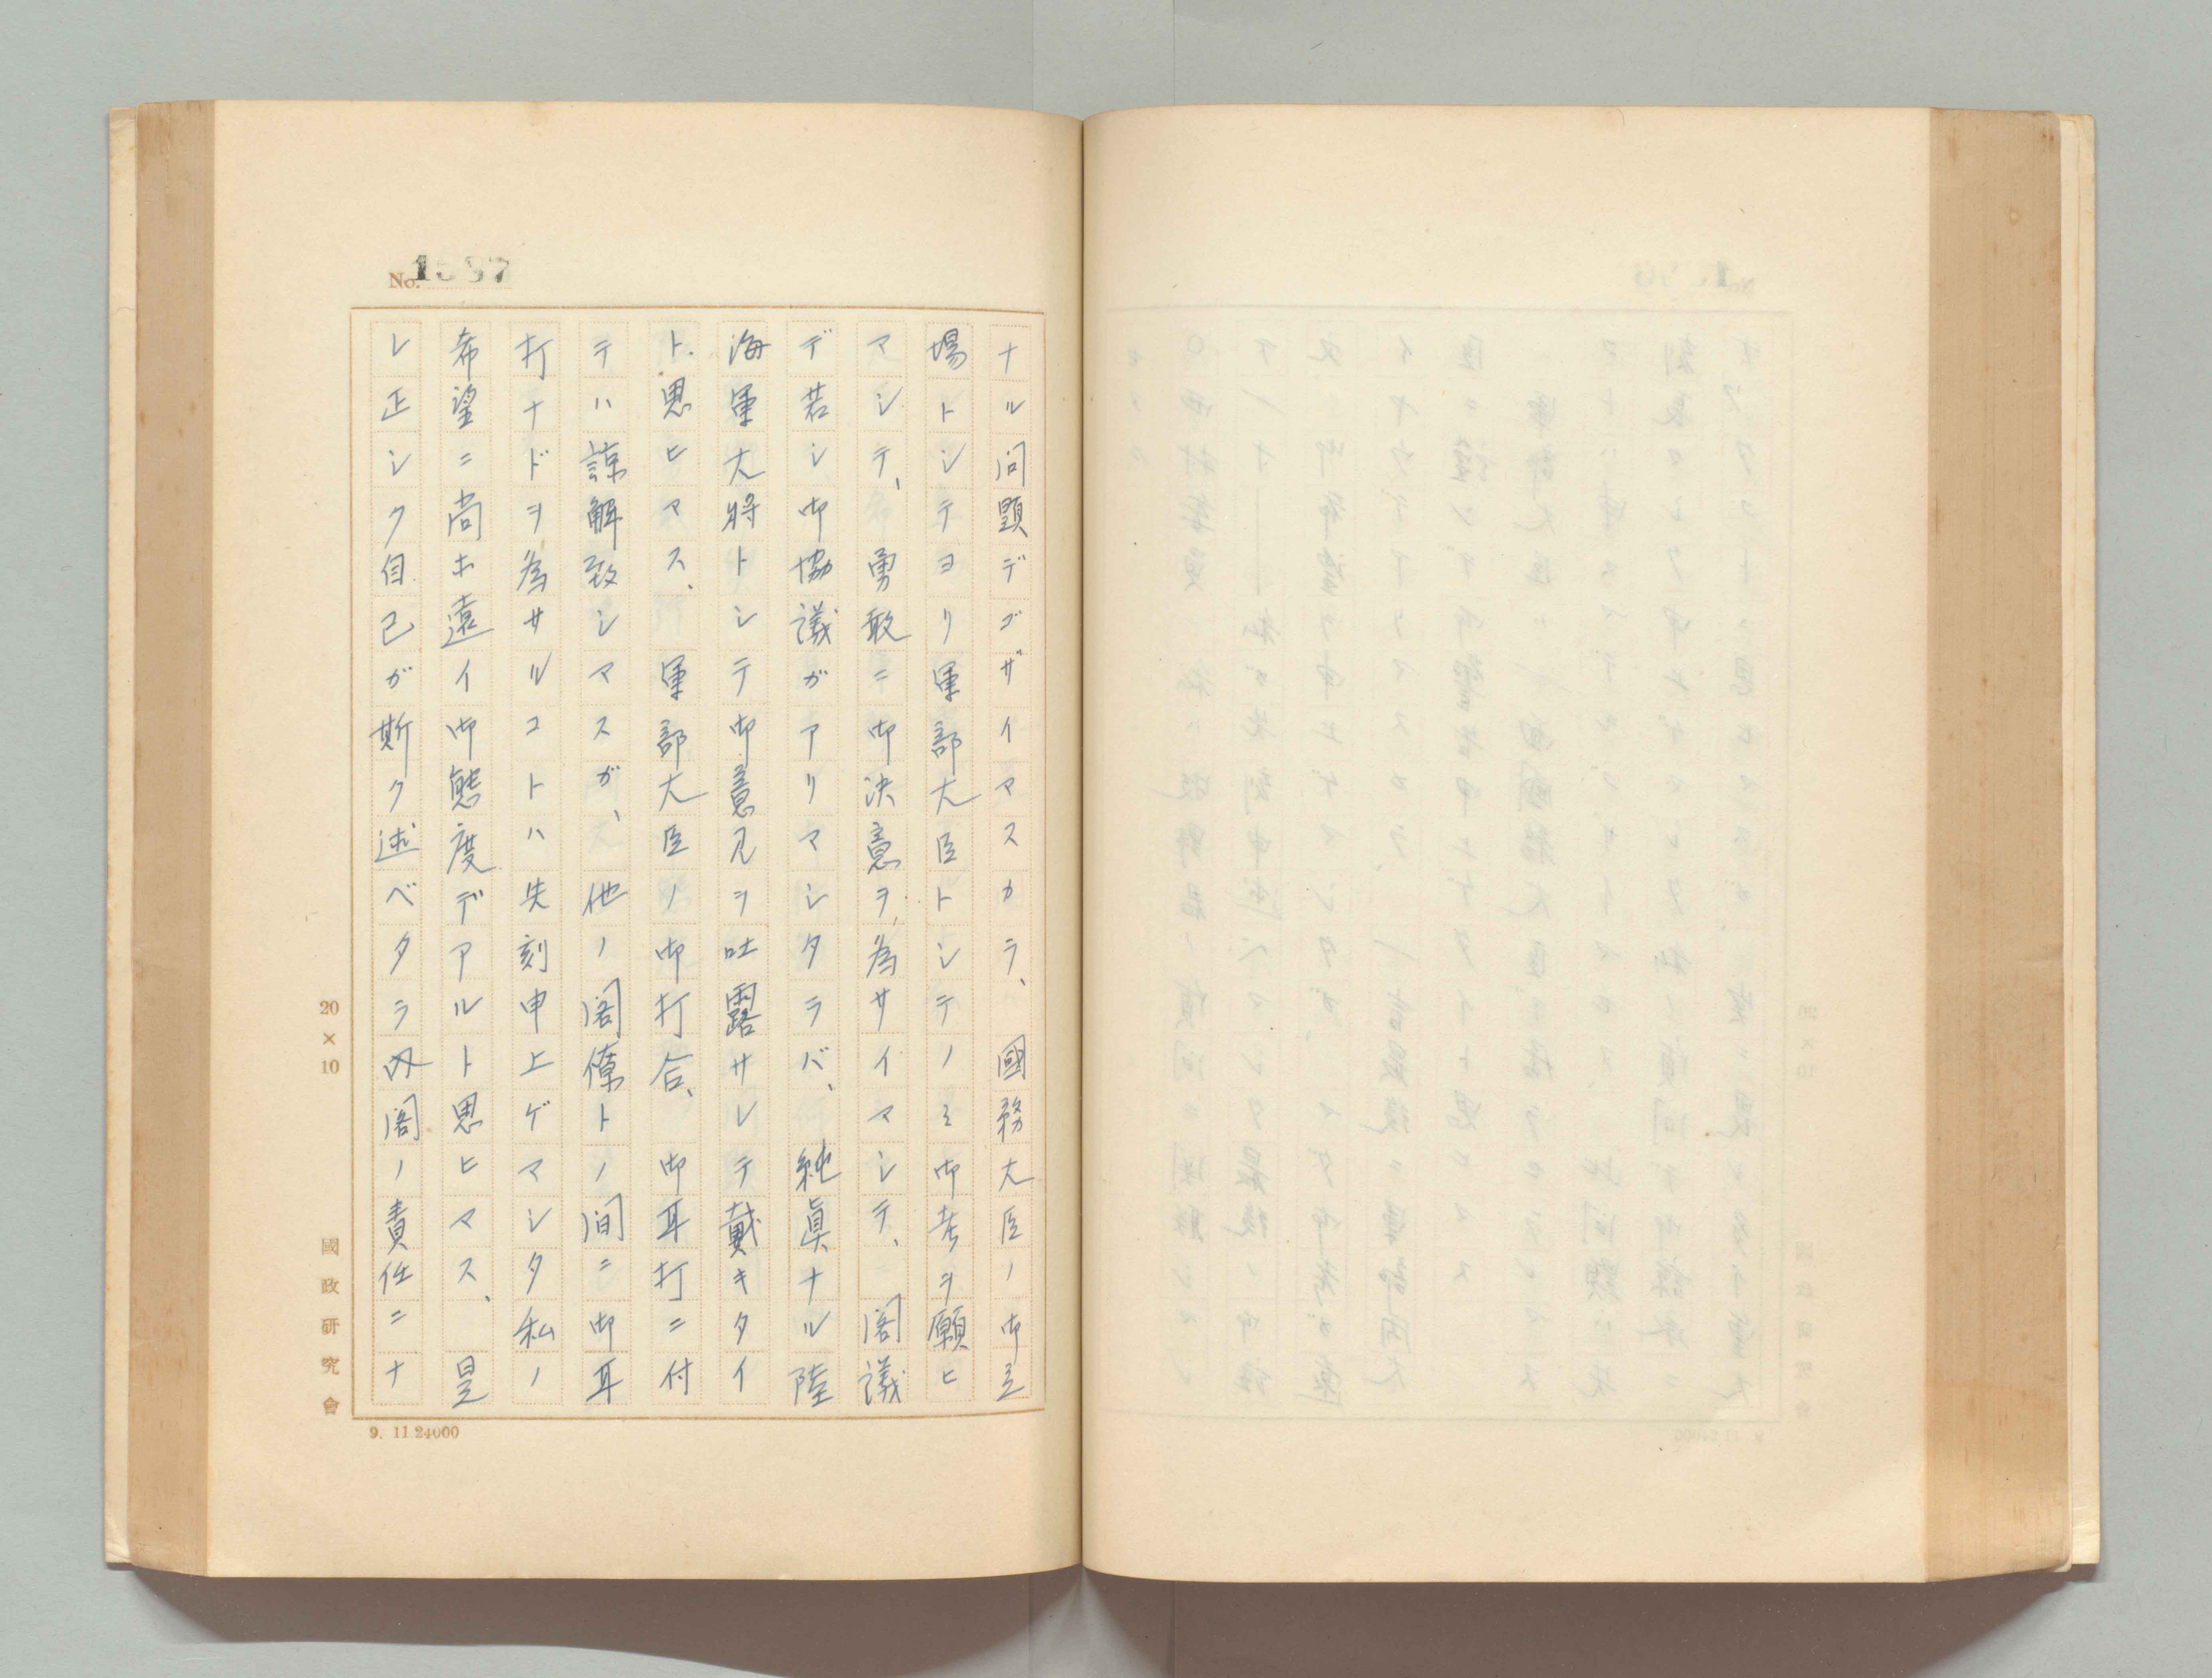 No. 1587
ナル問題デゴザイマスカラ、國務大臣ノ御立
場トシテヨリ軍部大臣トシテノミ御考ヲ願ヒ
マシテ、勇敢ニ御決意ヲ為サイマシテ、閣議
デ若シ御協議ガアリマシタラバ、純眞ナル陸
海軍大将トシテ御意見ヲ吐露サレテ戴キタイ
ト思ヒマス、軍部大臣ノ御打合、御耳打ニ付
テハ諒解致シマスガ、他ノ閣僚トノ間ニ御耳
打ナドヲ為サルコトハ失刻申上ゲマシタ私ノ
希望ニ尚ホ遠イ御態度デアルト思ヒマス、是
レ正シク自己ガ斯ク述ベタラ内閣ノ責任ニナ
20×10
國政研究會
9. 11 24000